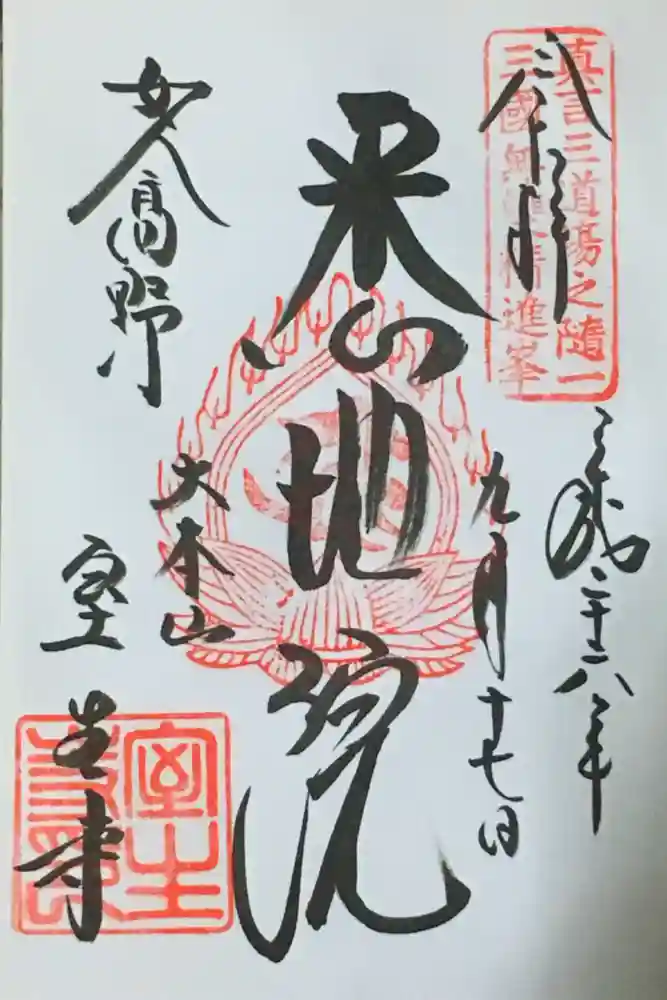 真言三道場之隨一
三國無雙精進峯
奉拝
平成二十八年
九月十七日
悉地院
大本山
女人高野
室生寺